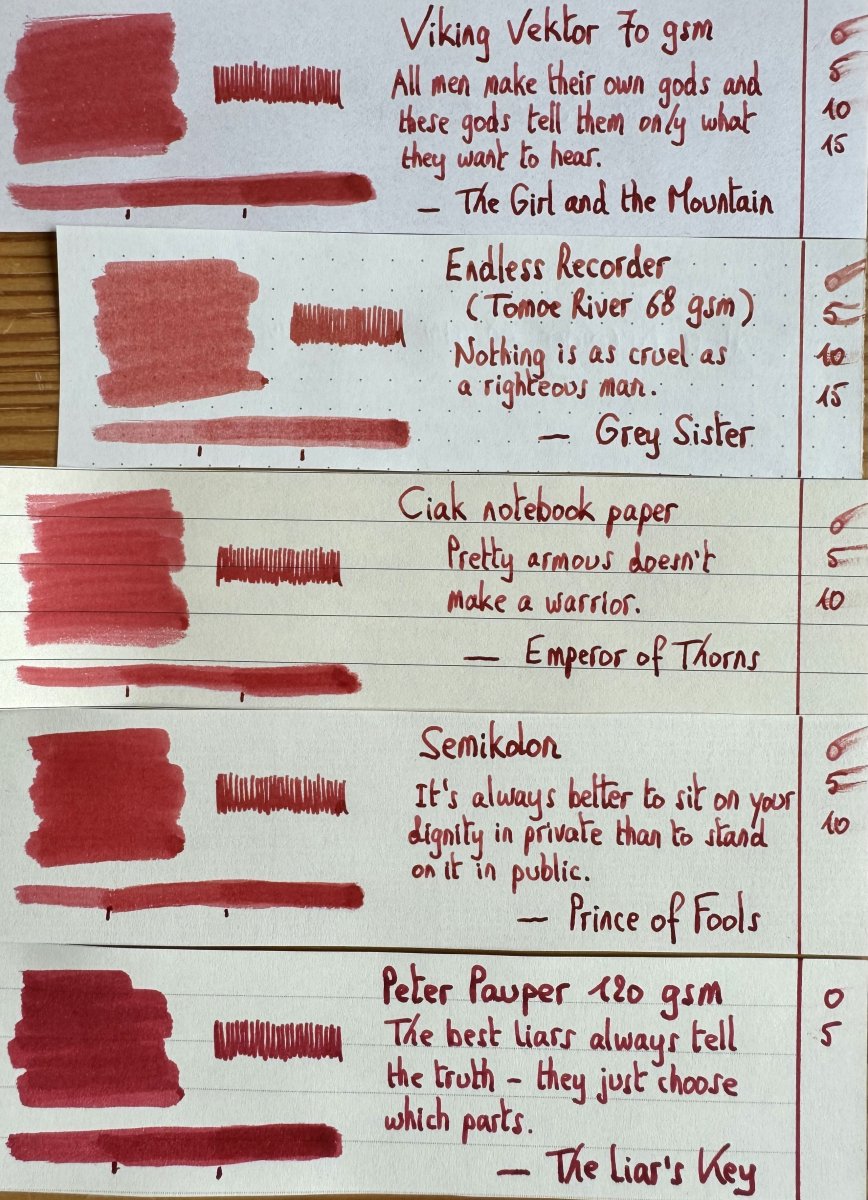 Viking Vektor 70 gsm
0
All men make their own gods and
5
these gods tell them only what
10
they want to hear.
15
— The Girl and the Mountain
Endless Recorder
0
(Tomoe River 68 gsm)
5
Nothing is as cruel as
10
a righteous man.
15
— Grey Sister
Ciak notebook paper
0
Pretty armous doesn't
5
make a warrior.
10
— Emperor of Thorns
Semikolon
0
It's always better to sit on your
5
dignity in private than to stand
10
on it in public.
— Prince of Fools
Peter Pauper 120 gsm
0
The best liars always tell
5
the truth – they just choose
which parts.
— The Liar's Key